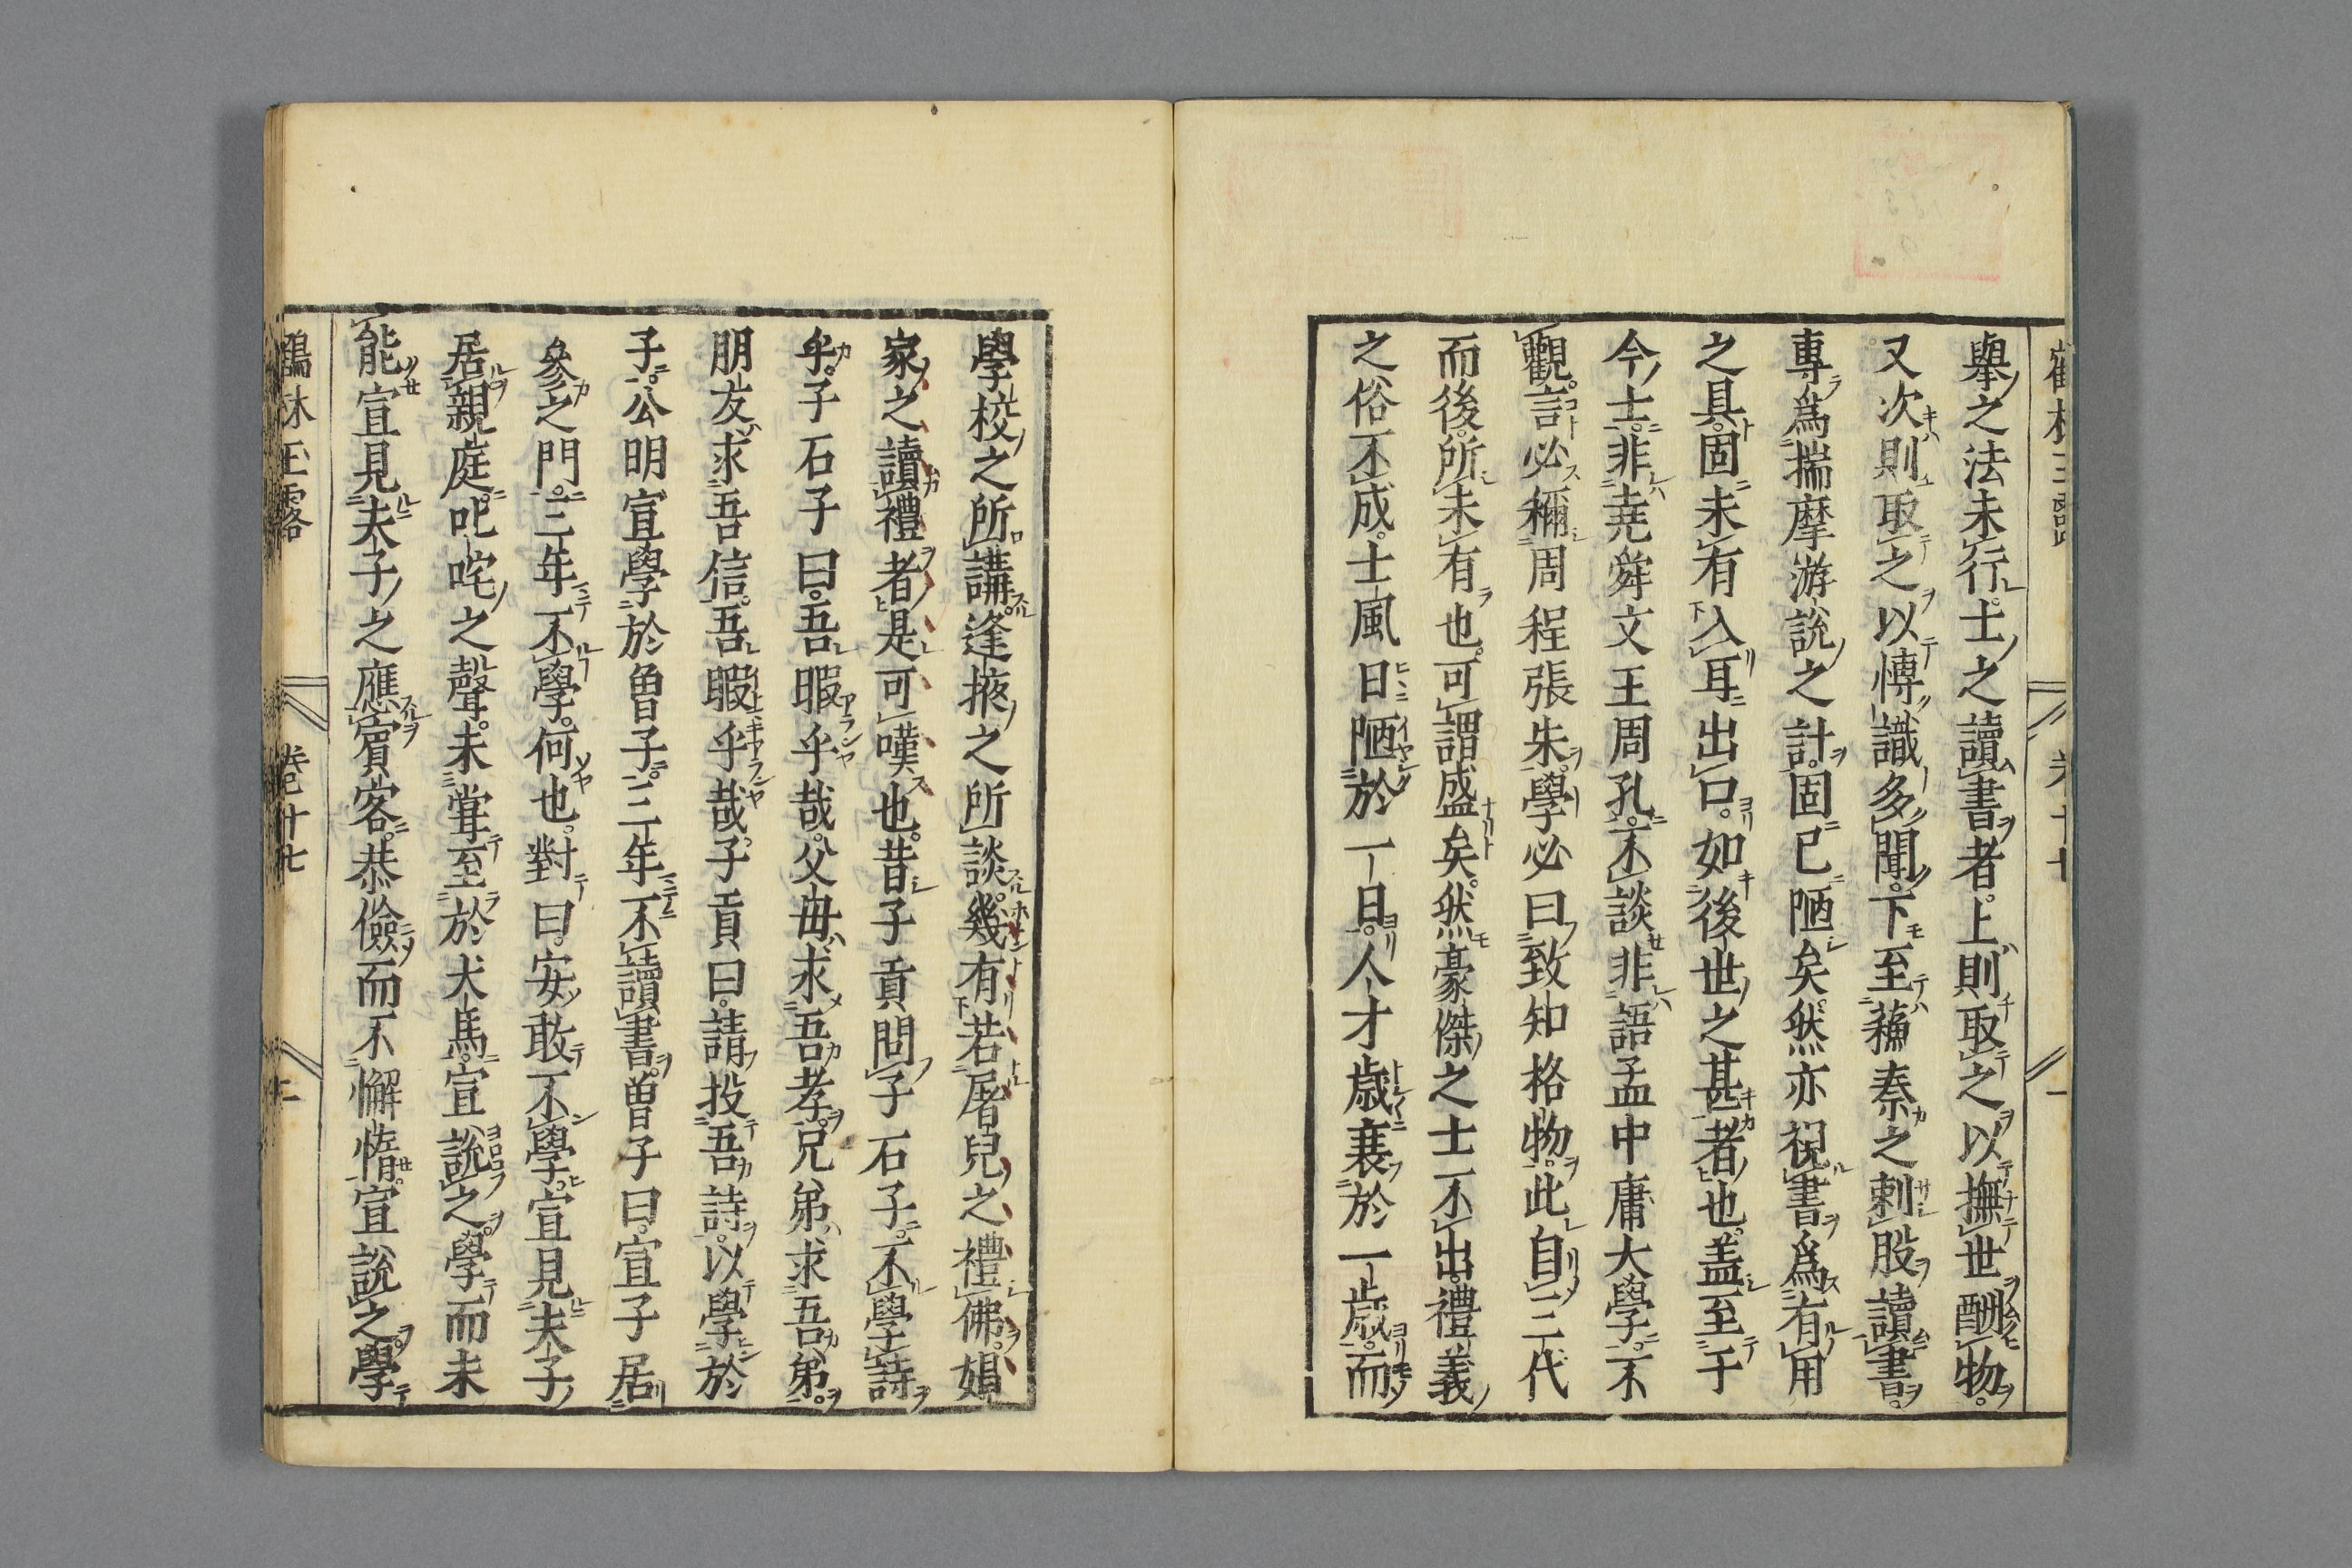 舉之法未行士之讀書者上則取之以撫世酬物
又次則取之以愽識多聞下至蘓秦之刺股讀書
專爲揣摩游說之計固已陋矣然亦視書爲有用
之具固未有入耳出口如後世之甚者也盖至于
今士非堯舜文王周孔不談非語孟中庸大學不
觀言必稱周程張朱學必曰致知格物此自三代
而後所未有也可謂盛矣然豪傑之士不出禮義
之俗不成士風日陋於一日人才歳衰於一歳而
學校之所講逢掖之所談幾有若屠兒之禮佛娼
家之讀禮者是可嘆也昔子貢問子石子不學詩
乎子石子曰吾暇乎哉父母求吾孝兄弟求吾弟
朋友求吾信吾暇乎哉子貢曰請投吾詩以學於
子公明宣學於曾子三年不讀書曾子曰宣子居
參之門三年不學何也對曰安敢不學宣見夫子
居親庭叱咤之聲未甞至於犬馬宣說之學而未
能宣見夫子之應賓客恭儉而不懈惰宣說之學
鶴林玉露　卷十七　二